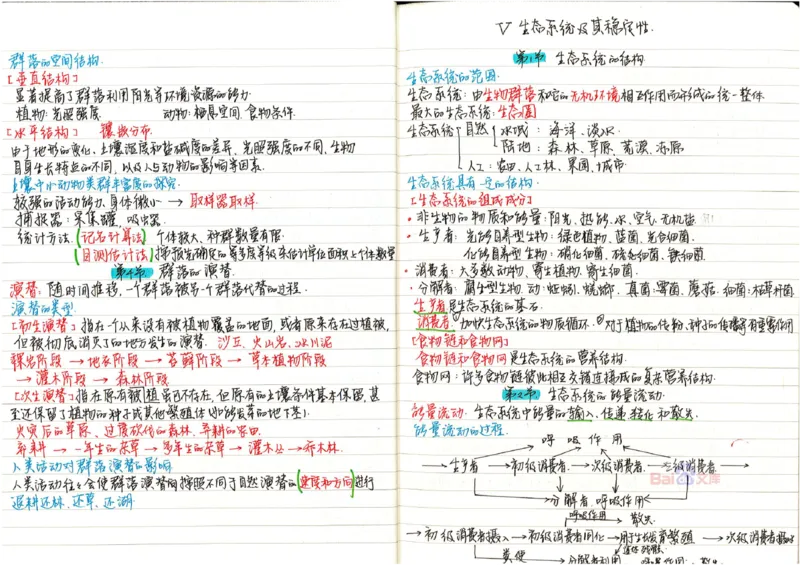 群落的空间结构
[垂直结构]
显著提高了群落利用阳光等环境资源的能力
植物:光照强度 动物:栖息空间、食物条件
[水平结构] 镶嵌分布
由于地形的变化、土壤湿度和盐碱度的差异、光照强度的不同、生物
自身生长特点的不同,以及人与动物的影响等因素
土壤中小动物类群丰富度的探究
较强的活动能力、身体微小 → 取样器取样
捕捉器:采集罐、吸虫器
统计方法 (记名计算法) 个体较大、种群数量有限
(目测估计法) 按预先确定的多度等级来估计单位面积上个体数量
第4节 群落的演替
演替:随时间推移,一个群落被另一个群落代替的过程
演替的类型
[初生演替] 指在一个从来没有被植物覆盖的地面,或者原来存在过植被,
但被彻底消灭了的地方发生的演替 沙丘、火山岩、冰川泥
裸岩阶段 → 地衣阶段 → 苔藓阶段 → 草本植物阶段
→ 灌木阶段 → 森林阶段
[次生演替] 指在原有植被虽已不存在,但原有的土壤条件基本保留,甚
至还保留了植物的种子或其他繁殖体(如能发芽的地下茎)
火灾后的草原、过度砍伐的森林、弃耕的农田
弃耕 → 一年生的杂草 → 多年生的杂草 → 灌木丛 → 乔木林
人类活动对群落演替的影响
人类活动往往会使群落演替按照不同于自然演替的(速度和方向)进行
退耕还林、还草、还湖
V 生态系统及其稳定性
第1节 生态系统的结构
生态系统的范围
生态系统:由生物群落和它的无机环境相互作用而形成的统一整体
最大的生态系统:生态圈
生态系统 自然 水域:海洋、淡水
陆地:森林、草原、荒漠、冻原
人工:农田、人工林、果园、城市
生态系统具有一定的结构
[生态系统的组成成分]
· 非生物的物质和能量:阳光、热能、水、空气、无机盐
· 生产者:光能自养型生物:绿色植物、蓝菌、光合细菌
化能自养型生物:硝化细菌、硫细菌、铁细菌
· 消费者:大多数动物、寄生植物、寄生细菌
· 分解者:腐生型生物 动:蚯蚓、蜣螂 真菌:霉菌、蘑菇 细菌:枯草杆菌
生产者是生态系统的基石
消费者 ①加快生态系统的物质循环 ②对于植物的传粉、种子的传播等有重要作用
[食物链和食物网]
食物链和食物网是生态系统的营养结构
食物网:许多食物链彼此相互交错连接成的复杂营养结构
第2节 生态系统的能量流动
能量流动:生态系统中能量的输入、传递、转化和散失
能量流动的过程
呼吸作用
→ 生产者 → 初级消费者 → 次级消费者 → 三级消费者 →
Bai 文库
分解者 呼吸作用
呼吸作用 → 散失
→ 初级消费者摄入 → 初级消费者同化 → 用于生长发育繁殖 → 次级消费者摄入
粪便 → 分解者利用 遗体残骸